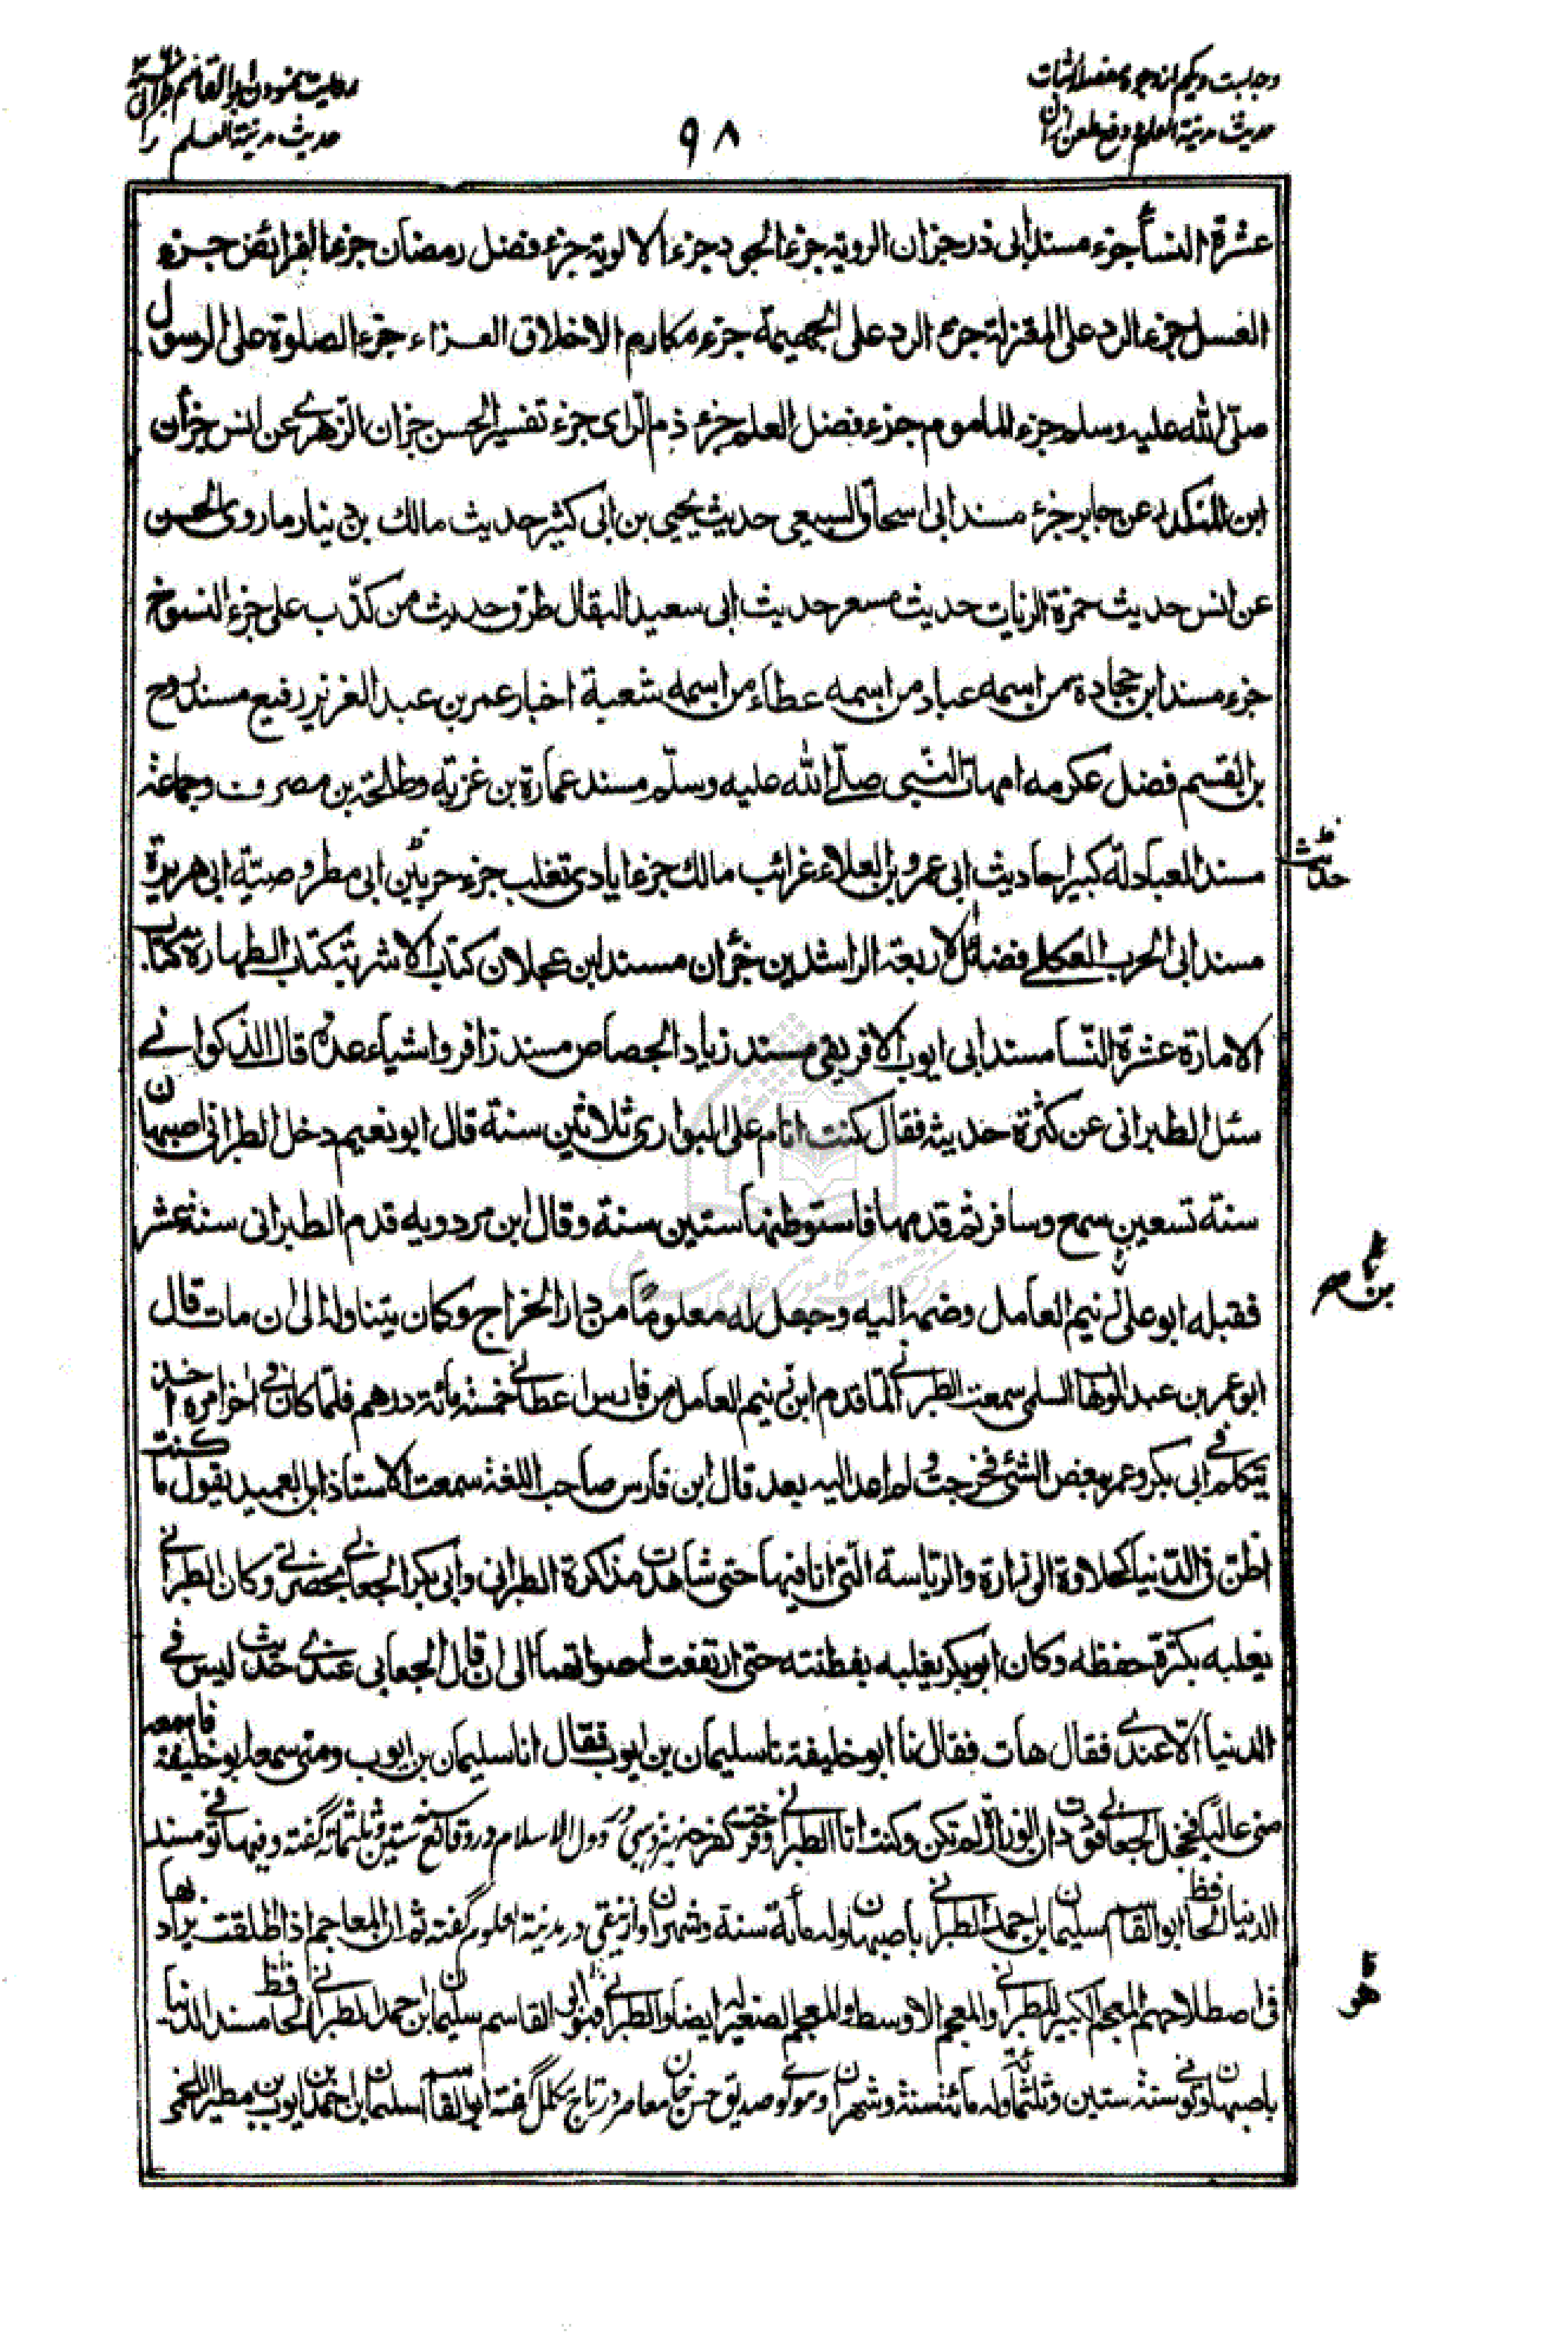 وجه بست ویکم از وجوه مفصله اثبات
حدیث مدینة العلم و دفع طعن
روایت نمودن ابو القاسم طبرانی
حدیث مدینة العلم را
۹۸
عشرة النسأ جزء مسند ابی ذر جزان الرویة جزء الجود جزء الالویة جزء فضل رمضان جزء الفرائض جزء
الغسل جزء الرد علی المعتزلة جزء الرد علی الجهمیة جزء مکارم الاخلاق العزاء جزء الصلوة علی الرسول
صلّی الله علیه وسلم جزء المأموم جزء فضل العلم جزء ذم الرای جزء تفسیر الحسن جزان الزهری عن انس جزأن
ابن المنکدر عن جابر جزء مسند ابی اسحاق السبیعی حدیث یحیی بن ابی کثیر حدیث مالک بن دینار ما روی الحسن
عن انس حدیث حمزة الزیات حدیث مسعر حدیث ابی سعید البقال طرق حدیث من کذّب علی جزء النسوخ
جزء مسند ابن جحادة من اسمه عباد من اسمه عطاء من اسمه شعبة اخبار عمر بن عبد العزیز رفیع مسند روح
بن القسم فضل عکرمه امهات النّبی صلّی الله علیه وسلّم مسند عمارة بن غزیه وطلحة بن مصرف وجماعة
مسند العبادلة کبیر احادیث ابی عمرو بن العلاء غرائب مالک جزء ایادی تغلب جزء حربثین ابی مطر وصیّة ابی هریرة
حدیث ظ
مسند ابی الحرب العکلی فضائل الاربعة الراشدین جزان مسند ابن عجلان کتاب الاشربة کتاب الطهارة کتاب
الامارة عشرة النّسا مسند ابی ایوب الافریقی مسند زیاد الجصاص مسند زافر واشیاء عدة قال الذکوانی
سئل الطبرانی عن کثرة حدیثه فقال کنت انام علی البواری ثلاثین سنة قال ابو نعیم دخل الطبرانی اصبهان
سنة تسعین سمع وسافر ثم قدمها فاستوطنها ستین سنة وقال ابن مردویه قدم الطبرانی سنة عشر
فقبله ابو علی بن رنیم العامل وضمه الیه وجعل له معلومًا من دار الخراج وکان یتناوله الی ان مات قال
ابو عمر بن عبد الوهاب السلمی سمعت الطبرانی لمّا قدم ابن رنیم العامل من فارس اعطانی خمسة مائة درهم فلمّا کان فی اخر امره اخذ
یتکلم فی ابی بکر وعمر ببعض الشئ فخرجت ولم اعد الیه بعد قال ابن فارس صاحب اللغة سمعت الاستاذ ابن العمید یقول ما کنت
اظن فی الدّنیا کحلاوة الوزارة والریاسة الّتی انا فیها حتی شاهدت مذاکرة الطبرانی وابی بکر الجعابی بحضرتی وکان الطبرانی
یغلبه بکثرة حفظه وکان ابو بکر یغلبه بفطنته حتی ارتفعت اصواتهما الی ان قال الجعابی عندی حدیث لیس فی
الدنیا الّا عندی فقال هات فقال نا ابو خلیفة نا سلیمان بن ایوب فقال انا سلیمان بن ایوب ومنی سمعه ابو خلیفة فاسمعه
منی عالیًا فخجل الجعابی فوددت ان الوزارة لم تکن وکنت انا الطبرانی وفرحت کفرحه ونیز ذهبی در دول الاسلام در وقائع سنه ستین وثلثمائة گفته وفیها توفی مسند
الدنیا الحافظ ابو القاسم سلیمان ابن احمد الطبرانی باصبهان وله مأئة سنة وشهران وازنیقی در مدینة العلوم گفته ثم ان المعاجم اذا اطلقت یراد بها
فی اصطلاحهم المعجم الکبیر للطبرانی والمعجم الاوسط والمعجم الصغیر له ایضا والطبرانی هو ابو القاسم سلیمان ابن احمد الطبرانی الحافظ مسند الدنیا
باصبهان وتوفی سنة ستین وثلثمائة وله مائة سنة وشهران ومولوی صدیق حسن خان معاصر در تاج مکلل گفته ابو القاسم سلیمان بن احمد بن ایوب بن مطیر اللخمی